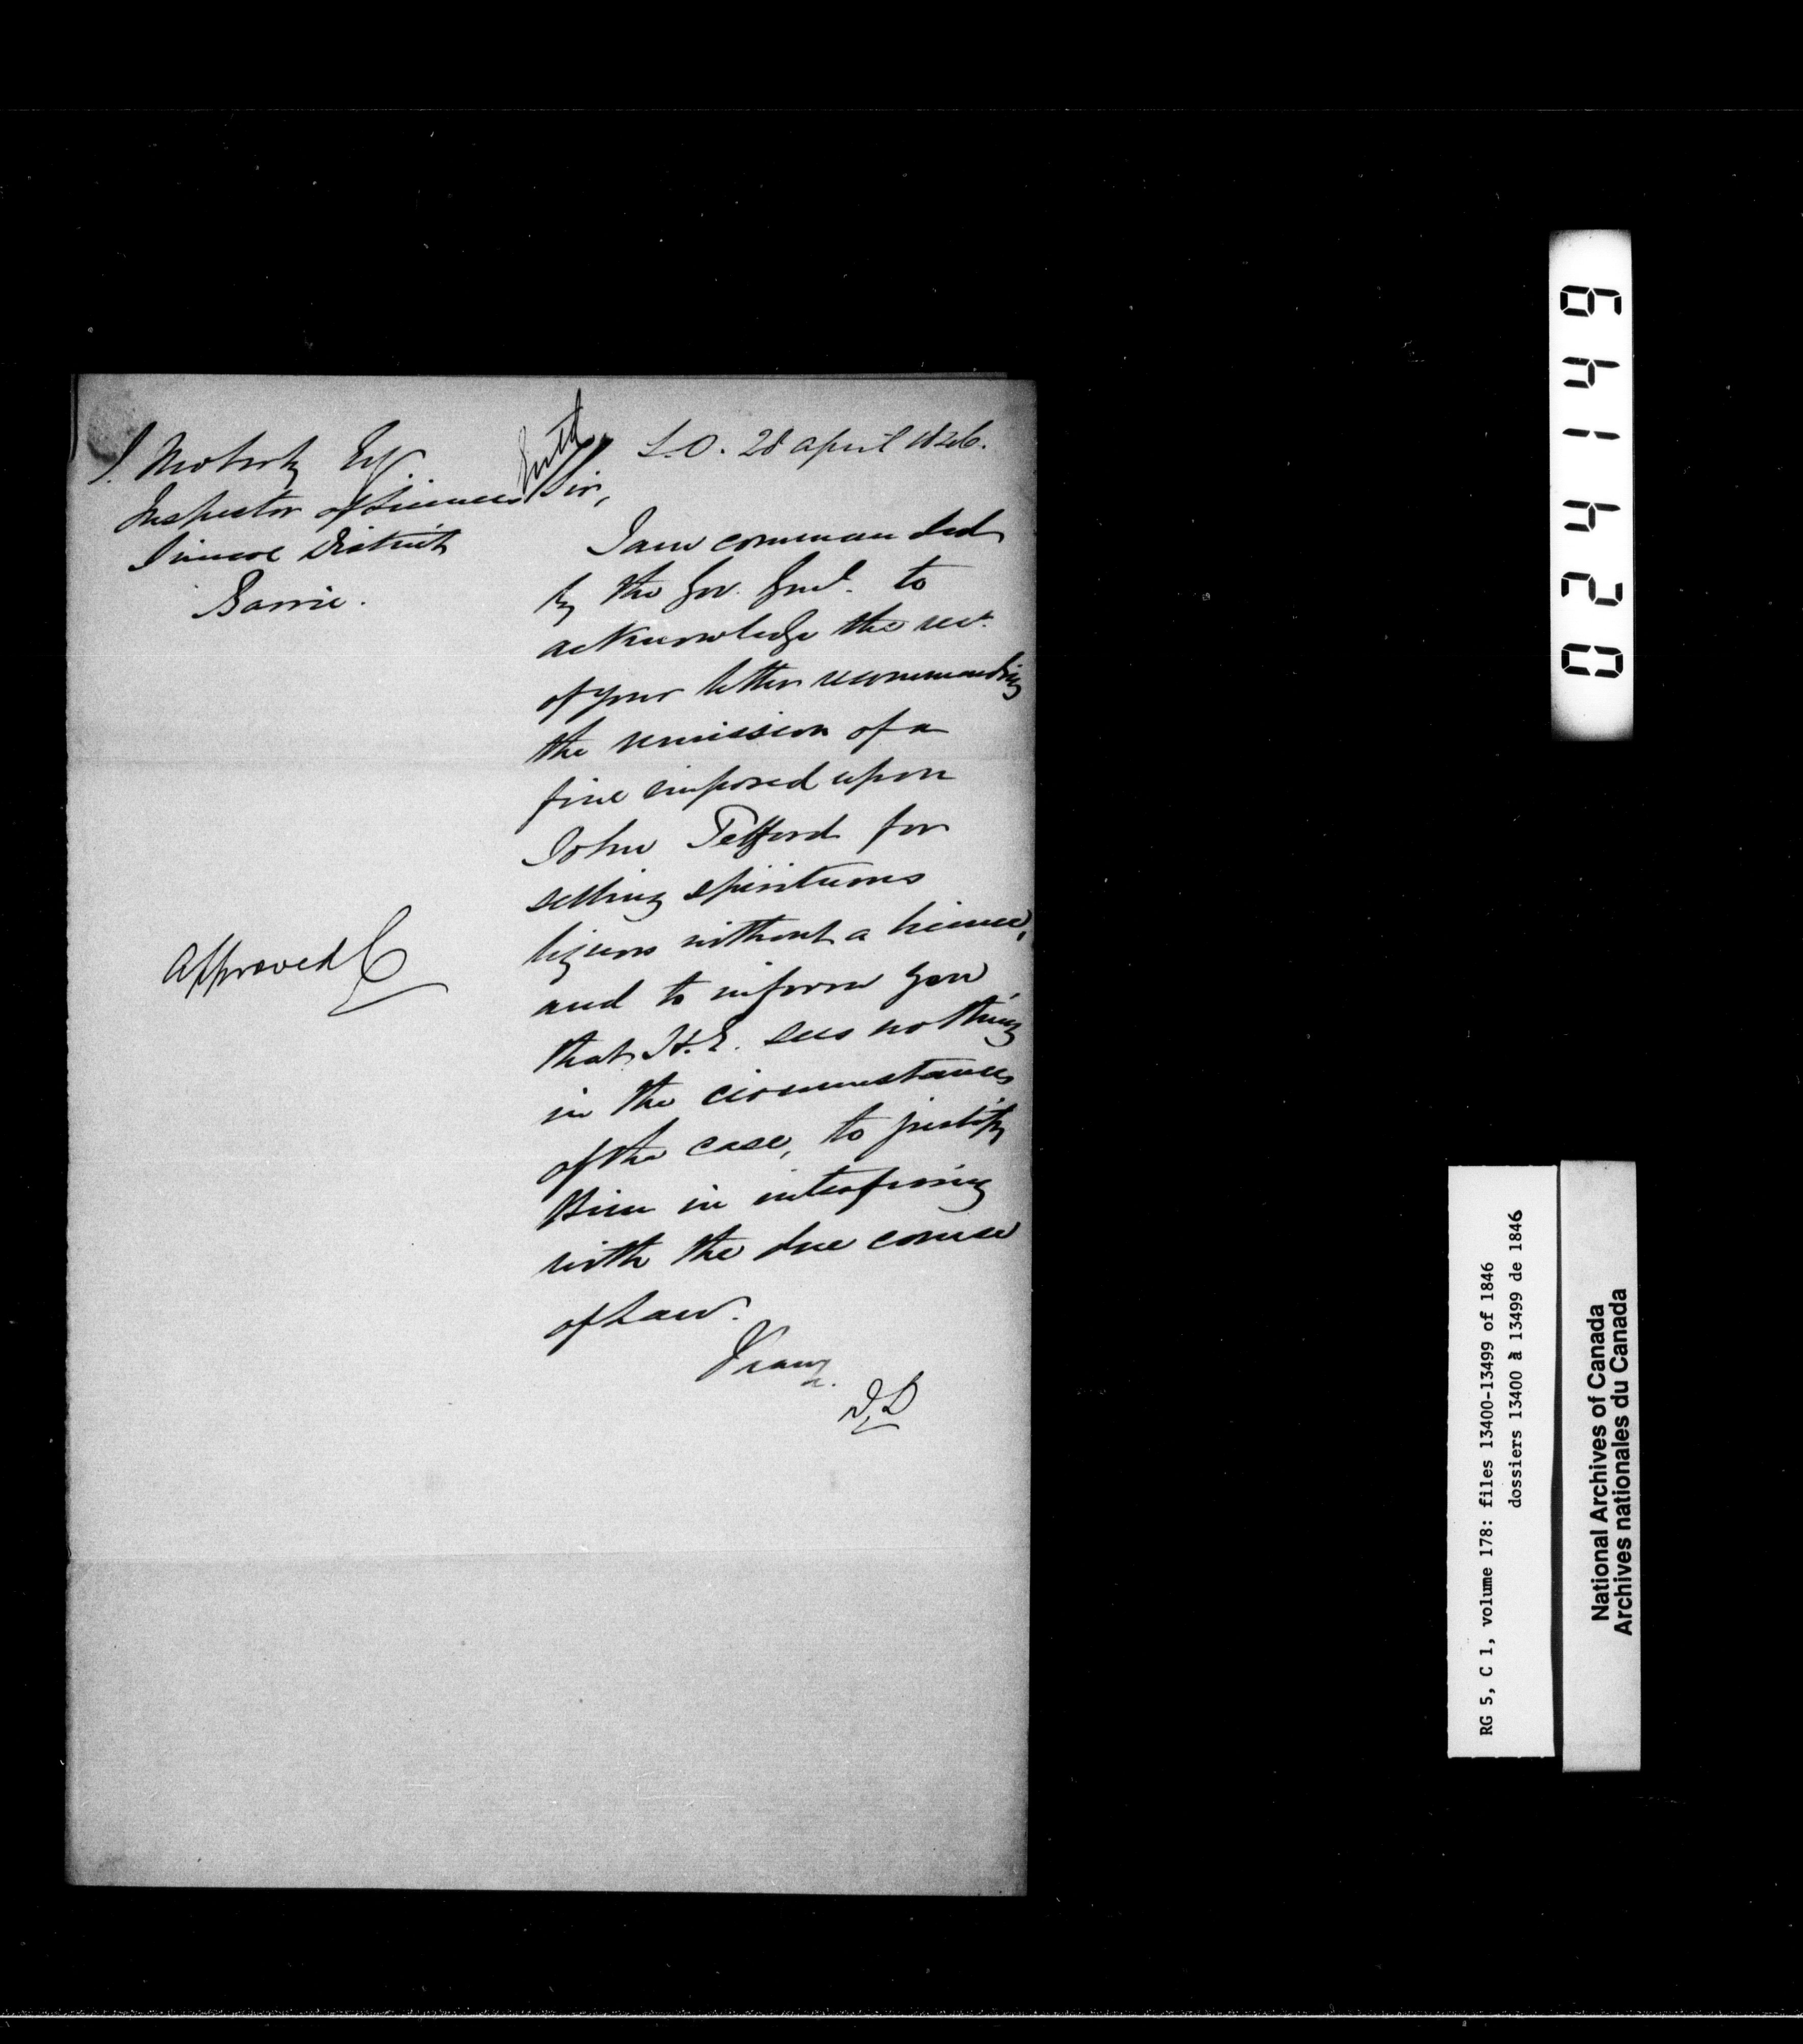 S.O. 28 April 1846.
Esq.
Inspector of Licences
Simcoe District
Barrie.
Sir,
I am commanded
by the Gov. Genl. to
acknowledge the rect.
of your letter recommending
the remission of a
fine imposed upon
John Telford for
selling spirituous
liquors without a licence,
and to inform you
that H.E. sees nothing
in the circumstances
of the case, to justify
Him in interfering
with the due course
of Law.
I have
&.
D.D
Approved
024146
RG 5, C 1, volume 178: files 13400-13499 of 1846
dossiers 13400 à 13499 de 1846
National Archives of Canada
Archives nationales du Canada